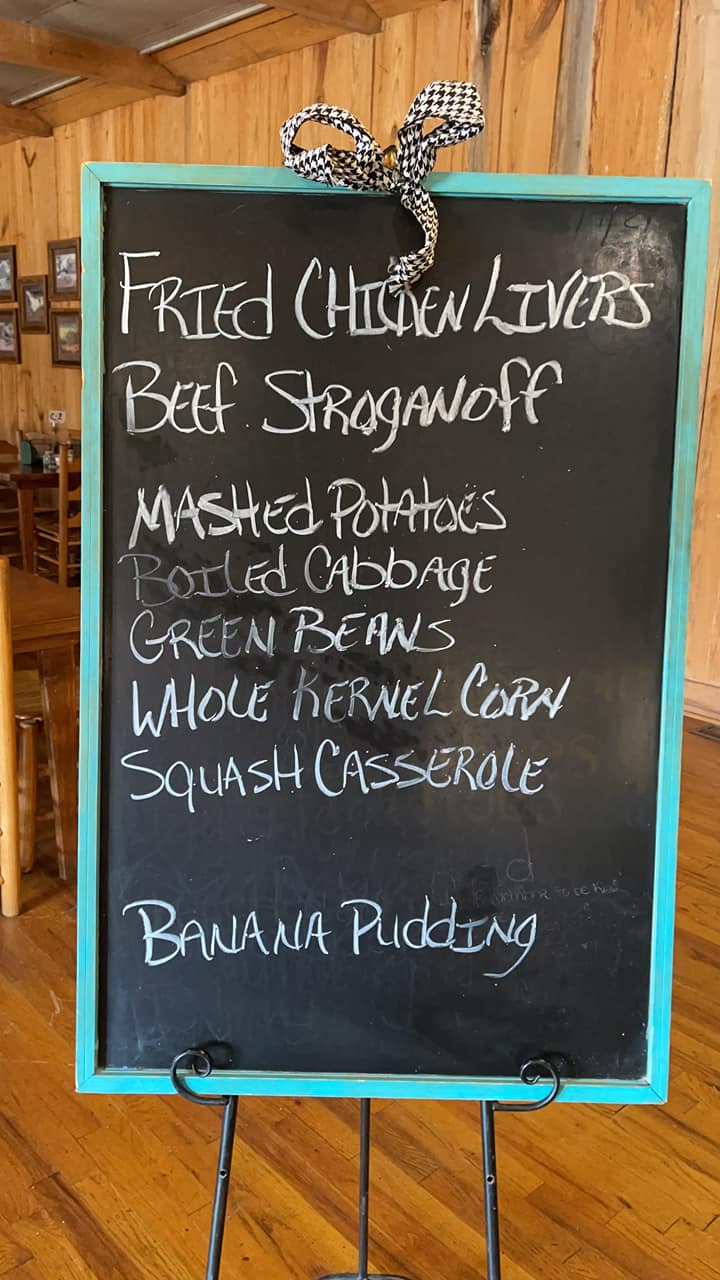 FRIEd CHICKEN LIVERS
BEEF StROgANOff
MASHEd POtAtOES
BOILEd CAbbAgE
GREEN BEANS
WHOLE KERNEL CORN
SQUASH CASSEROLE
BANANA PuddINg